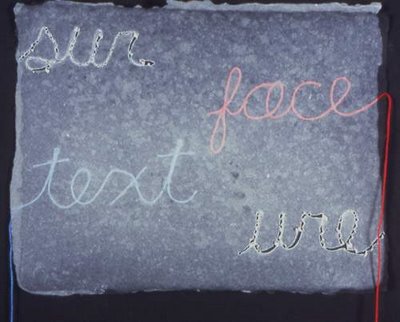 sur
face
text
ure